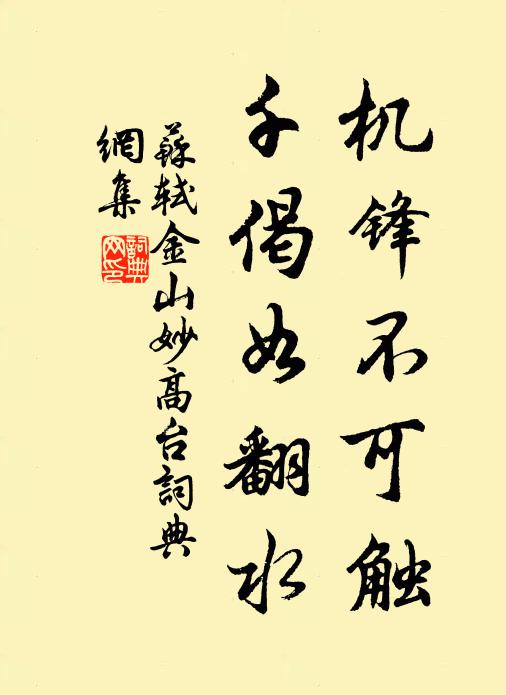 机锋不可触
千偈如翻水
蘇轼金山妙高台詞典
網集
詞典网印